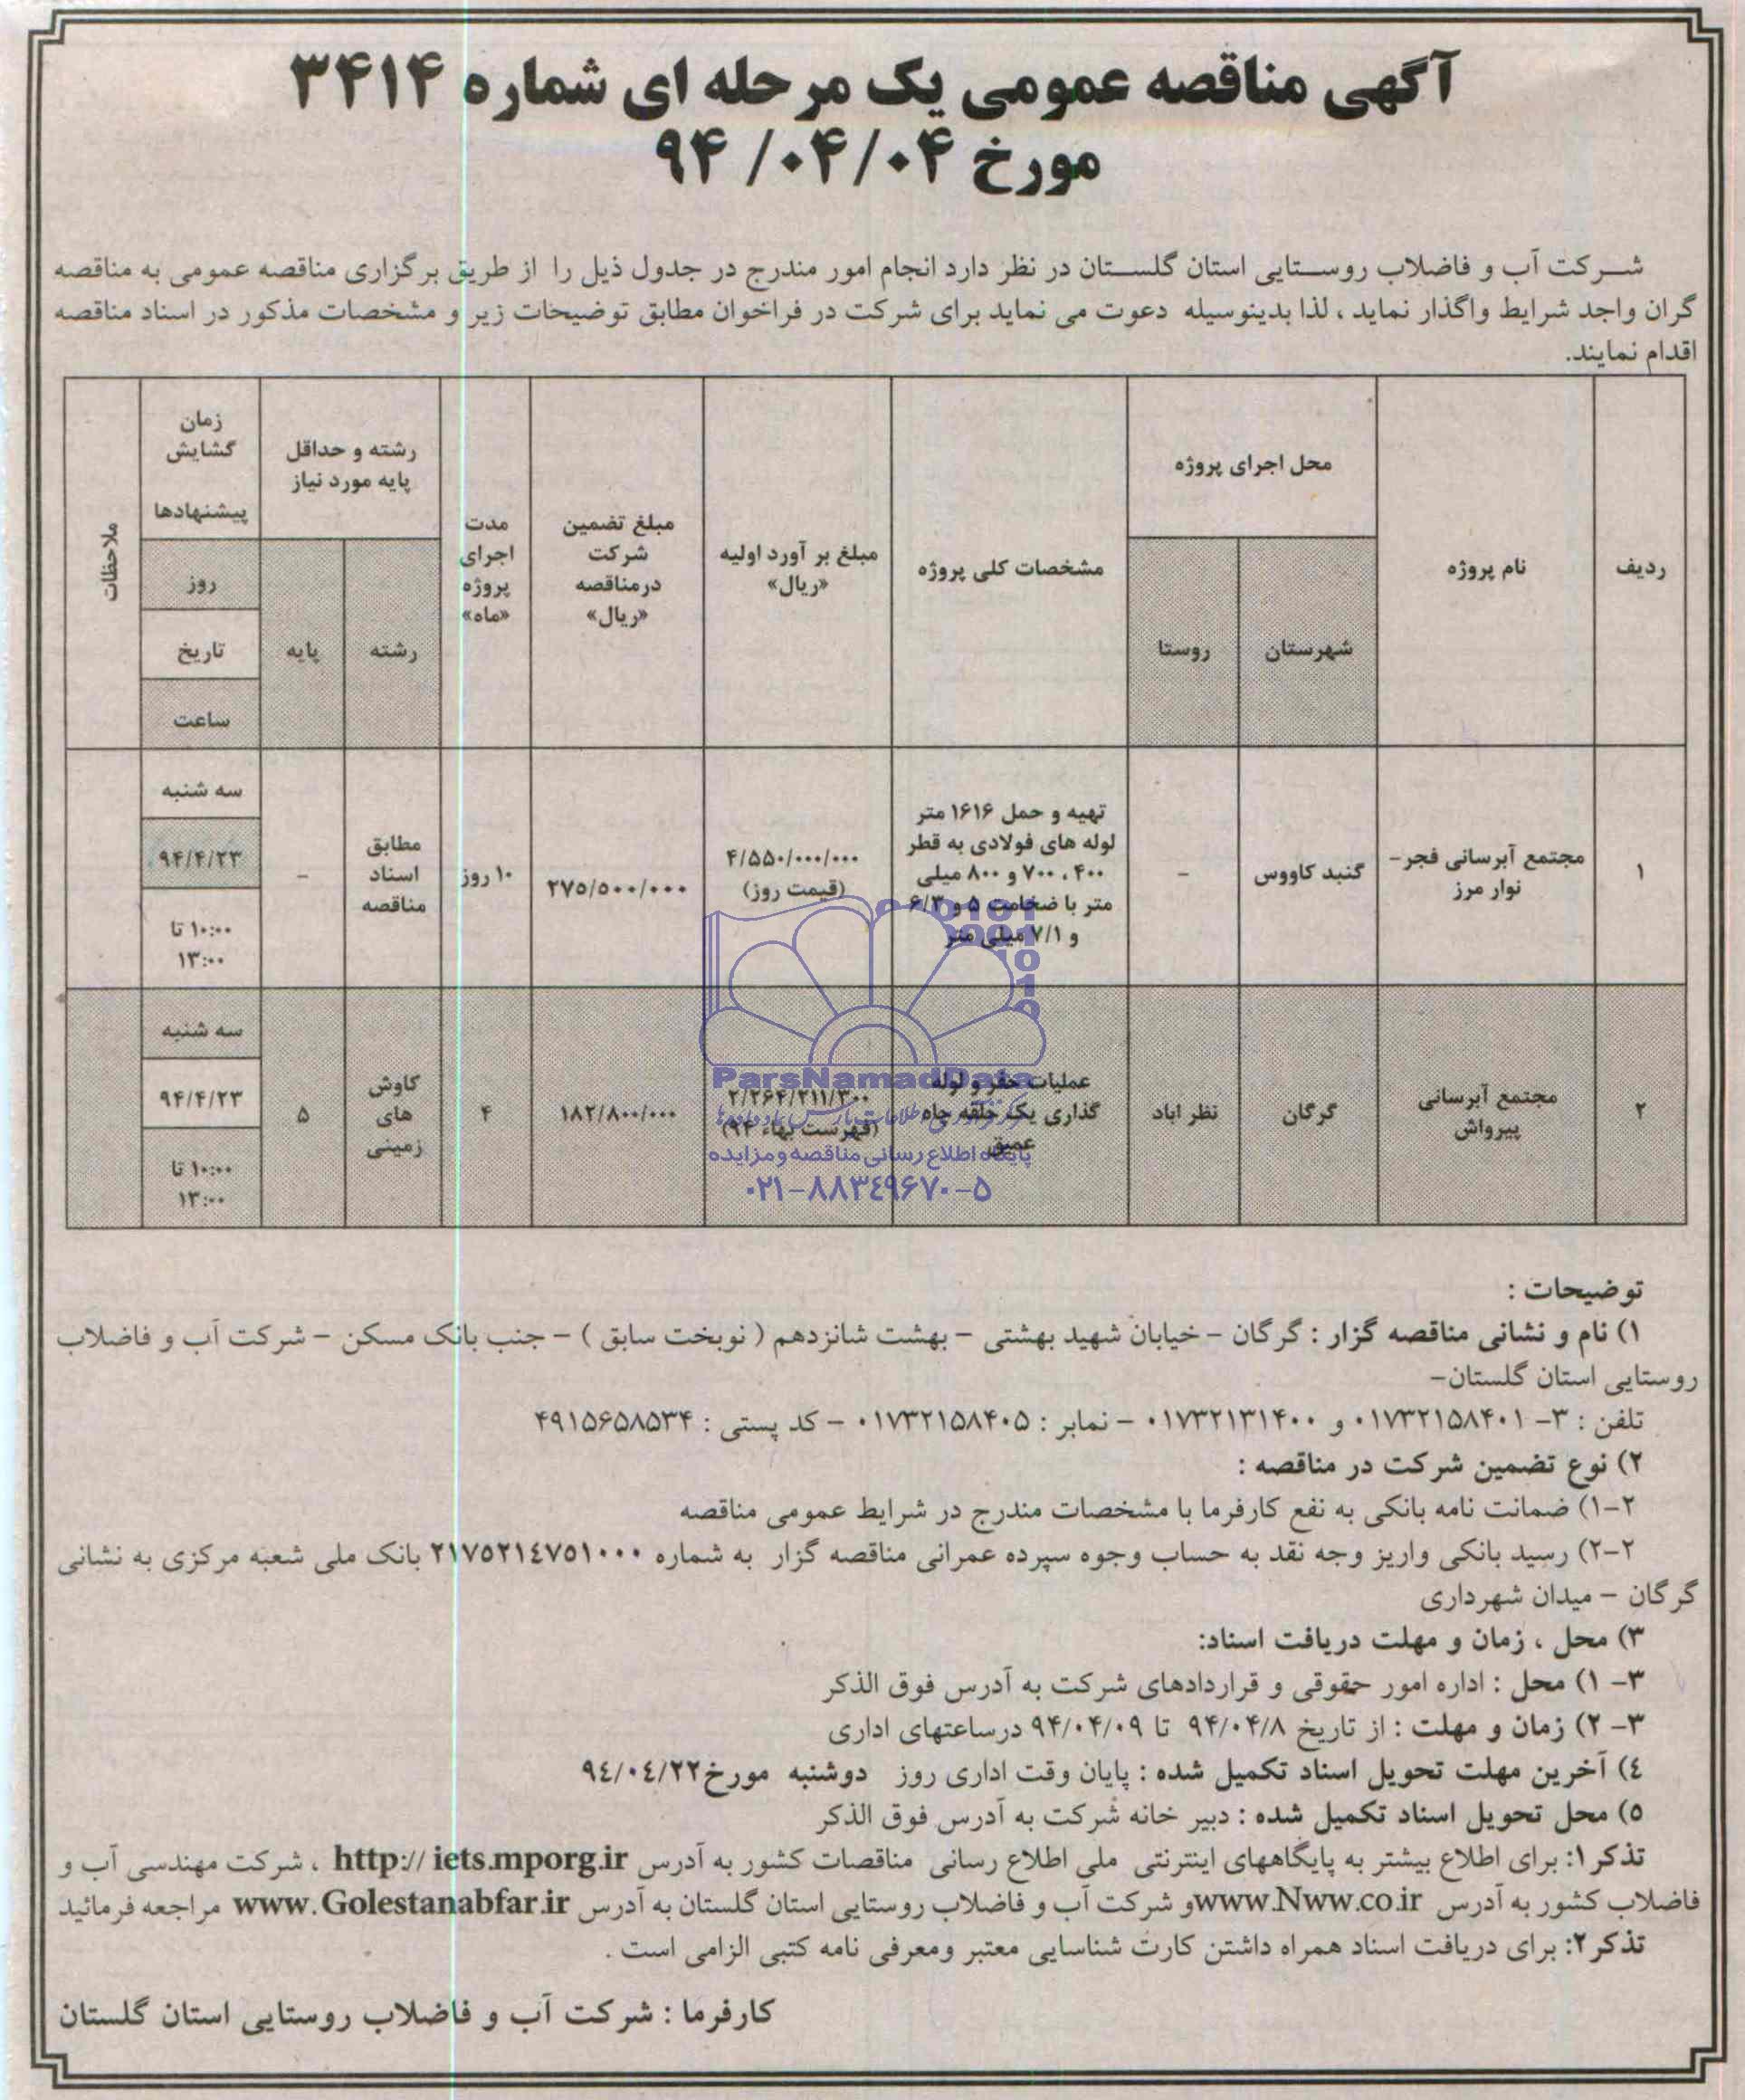 آگهی مناقصه عمومی یک مرحله ای شماره ۳۴۱۴
مورخ ۹۴/۰۴/۰۴
شرکت آب و فاضلاب روستایی استان گلستان در نظر دارد انجام امور مندرج در جدول ذیل را از طریق برگزاری مناقصه عمومی به مناقصه
گران واجد شرایط واگذار نماید ، لذا بدینوسیله دعوت می نماید برای شرکت در فراخوان مطابق توضیحات زیر و مشخصات مذکور در اسناد مناقصه
اقدام نمایند.
ردیف
نام پروژه
محل اجرای پروژه
شهرستان
روستا
مشخصات کلی پروژه
مبلغ بر آورد اولیه
«ریال»
مبلغ تضمین
شرکت
درمناقصه
«ریال»
مدت
اجرای
پروژه
«ماه»
رشته و حداقل
پایه مورد نیاز
رشته
پایه
زمان
گشایش
پیشنهادها
روز
تاریخ
ساعت
ملاحظات
۱
مجتمع آبرسانی فجر-
نوار مرز
گنبد کاووس
-
تهیه و حمل ۱۶۱۶ متر
لوله های فولادی به قطر
۴۰۰ ، ۷۰۰ و ۸۰۰ میلی
متر با ضخامت ۵ و ۶/۳
و ۷/۱ میلی متر
۴/۵۵۰/۰۰۰/۰۰۰
(قیمت روز)
۲۷۵/۵۰۰/۰۰۰
۱۰ روز
مطابق
اسناد
مناقصه
-
سه شنبه
۹۴/۴/۲۳
۱۰:۰۰ تا
۱۳:۰۰
۲
مجتمع آبرسانی
پیرواش
گرگان
نظر اباد
عملیات حفر و لوله
گذاری یک حلقه چاه
عمیق
۲/۲۶۴/۲۱۱/۳۰۰
(فهرست بهاء ۹۴)
۱۸۲/۸۰۰/۰۰۰
۴
کاوش
های
زمینی
۵
سه شنبه
۹۴/۴/۲۳
۱۰:۰۰ تا
۱۳:۰۰
ParsNamadData
پایگاه اطلاع رسانی مناقصه و مزایده
۰۲۱-۸۸۳۴۹۶۷۰-۵
توضیحات :
۱) نام و نشانی مناقصه گزار : گرگان - خیابان شهید بهشتی - بهشت شانزدهم ( نوبخت سابق ) - جنب بانک مسکن - شرکت آب و فاضلاب
روستایی استان گلستان-
تلفن : ۳- ۰۱۷۳۲۱۵۸۴۰۱ و ۰۱۷۳۲۱۳۱۴۰۰ - نمابر : ۰۱۷۳۲۱۵۸۴۰۵ - کد پستی : ۴۹۱۵۶۵۸۵۳۴
۲) نوع تضمین شرکت در مناقصه :
۲-۱) ضمانت نامه بانکی به نفع کارفرما با مشخصات مندرج در شرایط عمومی مناقصه
۲-۲) رسید بانکی واریز وجه نقد به حساب وجوه سپرده عمرانی مناقصه گزار به شماره ۲۱۷۵۲۱٤۷۵۱۰۰۰ بانک ملی شعبه مرکزی به نشانی
گرگان - میدان شهرداری
۳) محل ، زمان و مهلت دریافت اسناد:
۳- ۱) محل : اداره امور حقوقی و قراردادهای شرکت به آدرس فوق الذکر
۳- ۲) زمان و مهلت : از تاریخ ۹۴/۰۴/۸ تا ۹۴/۰۴/۰۹ درساعتهای اداری
٤) آخرین مهلت تحویل اسناد تکمیل شده : پایان وقت اداری روز دوشنبه مورخ۹٤/۰٤/۲۲
۵) محل تحویل اسناد تکمیل شده : دبیر خانه شرکت به آدرس فوق الذکر
تذکر۱: برای اطلاع بیشتر به پایگاههای اینترنتی ملی اطلاع رسانی مناقصات کشور به آدرس http:// iets.mporg.ir ، شرکت مهندسی آب و
فاضلاب کشور به آدرس www.Nww.co.ir و شرکت آب و فاضلاب روستایی استان گلستان به آدرس www. Golestanabfar.ir مراجعه فرمائید
تذکر۲: برای دریافت اسناد همراه داشتن کارت شناسایی معتبر ومعرفی نامه کتبی الزامی است .
کارفرما : شرکت آب و فاضلاب روستایی استان گلستان